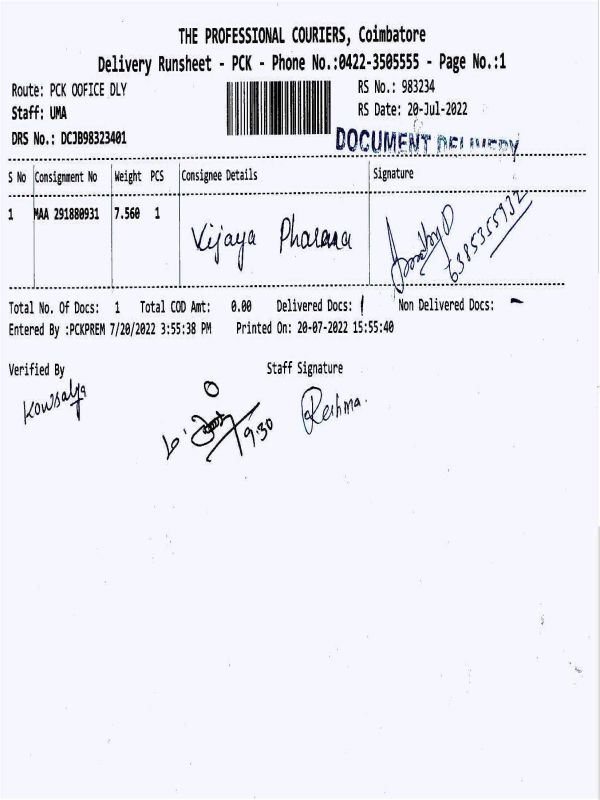 THE PROFESSIONAL COURIERS, Coimbatore
Delivery Runsheet - PCK - Phone No.:0422-3505555 - Page No.:1
Route: PCK OOFICE DLY RS No.: 983234
Staff: UMA RS Date: 20-Jul-2022
DRS No.: DCJB98323401
DOCUMENT DELIVERY
S No Consignment No Weight PCS Consignee Details Signature
1 MAA 291880931 7.560 1 Vijaya Pharama
6385355932
Total No. Of Docs: 1 Total COD Amt: 0.00 Delivered Docs: 1 Non Delivered Docs: -
Entered By :PCKPREM 7/20/2022 3:55:38 PM Printed On: 20-07-2022 15:55:40
Verified By Staff Signature
Kowsalya Reshma.
9.30